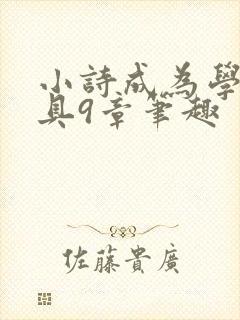 小詩成為學
具9章筆趣
佐藤貴廣